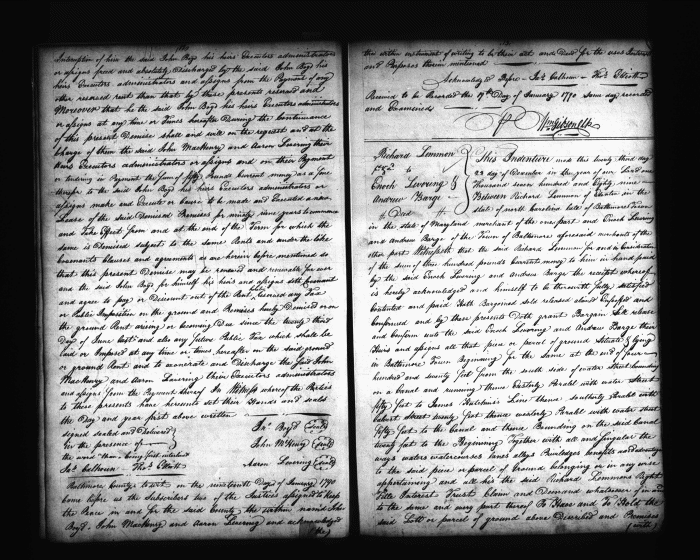 Interuption of him the said John Boyd his heirs Executors administrators
or assigns freed and absolutely Discharged by the said John Boyd his
heirs Executors administrators and assigns from the Payment of any
other reserved rent than that by these presents reserved and
Moreover that he the said John Boyd his heirs Executors administrators
or assigns at any time or times hereafter During the continuance
of this present Demise shall and will on the request and at the
charge of them the said John MacHenry and Aaron Levering their
heirs Executors administrators or assigns and on their Payment
or tendering in Payment the Sum of fifty Pounds current money as a fine
therefor to the said John Boyd his heirs Executors administrators or
assigns make and Execute or Cause to be made and Executed a new
Lease of the said Demised Premises for ninety nine years to commence
and Take Effect from and at the end of the Term for which the
same is Demised subject to the same Rents and under the like
Covenants Clauses and agreements as are herein before mentioned so
that this present Demise may be renewed and renewable for ever
and the said John Boyd for himself his heirs and assigns doth Covenant
and agree to pay or Discount out of the Rent reserved any Tax
or Public Imposition on the ground and Premises hereby Demised or on
the ground Rent arising or becoming Due since the twenty third
Day of June last and also any Public Tax which shall be
laid or Imposed at any time or times hereafter on the said ground
or ground Rent and to exonerate and Discharge the said John
MacHenry and Aaron Levering their Executors administrators
and assigns from the Payment thereof In Witness whereof the Parties
to these presents have hereunto set their Hands and seals
the Day and year first above written
signed sealed and Delivered
in the presence of
Jas. Boyd (seal)
John McHenry (seal)
Aaron Levering (seal)
the word being first interlined
Jas. Calhoun Thos. Elliott
Baltimore County to wit on the nineteenth Day of January 1790
Came before us the Subscribers two of the Justices assigned to keep
the Peace in and for the said County the within named John
Boyd John MacHenry and Aaron Levering and acknowledged
(the)
the within instrument of writing to be their act and Deed for the uses Intents
and Purposes therein mentioned
Acknowledged Before Jas. Calhoun Thos. Elliott
Received to be Recorded the 19th Day of January 1790 same day recorded
and Examined
Wm Gibson Clk
Richard Lemmon
to
Enoch Levering &
Andrew Barge
Deed
This Indenture made this twenty third day
23 day of December in the year of our Lord one
Thousand seven hundred and Eighty nine
Between Richard Lemmon of in the
state of north Carolina late of Baltimore Town
in the state of Maryland merchant of the one part and Enoch Levering
and Andrew Barge of the Town of Baltimore aforesaid merchants of the
other part Witnesseth that the said Richard Lemmon for and in Consideration
of the sum of three hundred pounds Current money to him in hand paid
by the said Enoch Levering and Andrew Barge the receipt whereof
is hereby acknowledged and himself to be therewith fully satisfied
Contented and paid Hath Bargained sold released aliened Enfeoffed and
Confirmed and by these presents Doth grant Bargain Sell release
and Confirm unto the said Enoch Levering and Andrew Barge their
Heirs and assigns all that piece or parcel of ground Situate & lying
in Baltimore Town Beginning for the same at the end of four
hundred and seventy feet from the south side of water street bounding
on a and running thence Easterly Paralel with water Street
fifty feet to James Line thence southerly Paralel with
Calvert street ninety feet thence westerly Paralel with water street
fifty feet to the Canal and thence Bounding on the said Canal
ninety feet to the Beginning Together with all and singular the
ways waters watercourses lanes alleys Priviledges benefits and advantages
to the said piece or parcel of Ground belonging or in any wise
appertaining and all his the said Richard Lemmons Right
Title Interest Trust Claim and Demand whatsoever of in and
to the same and every part thereof To Have and To Hold the
said Lott or parcel of ground above Described and Premises
(with)